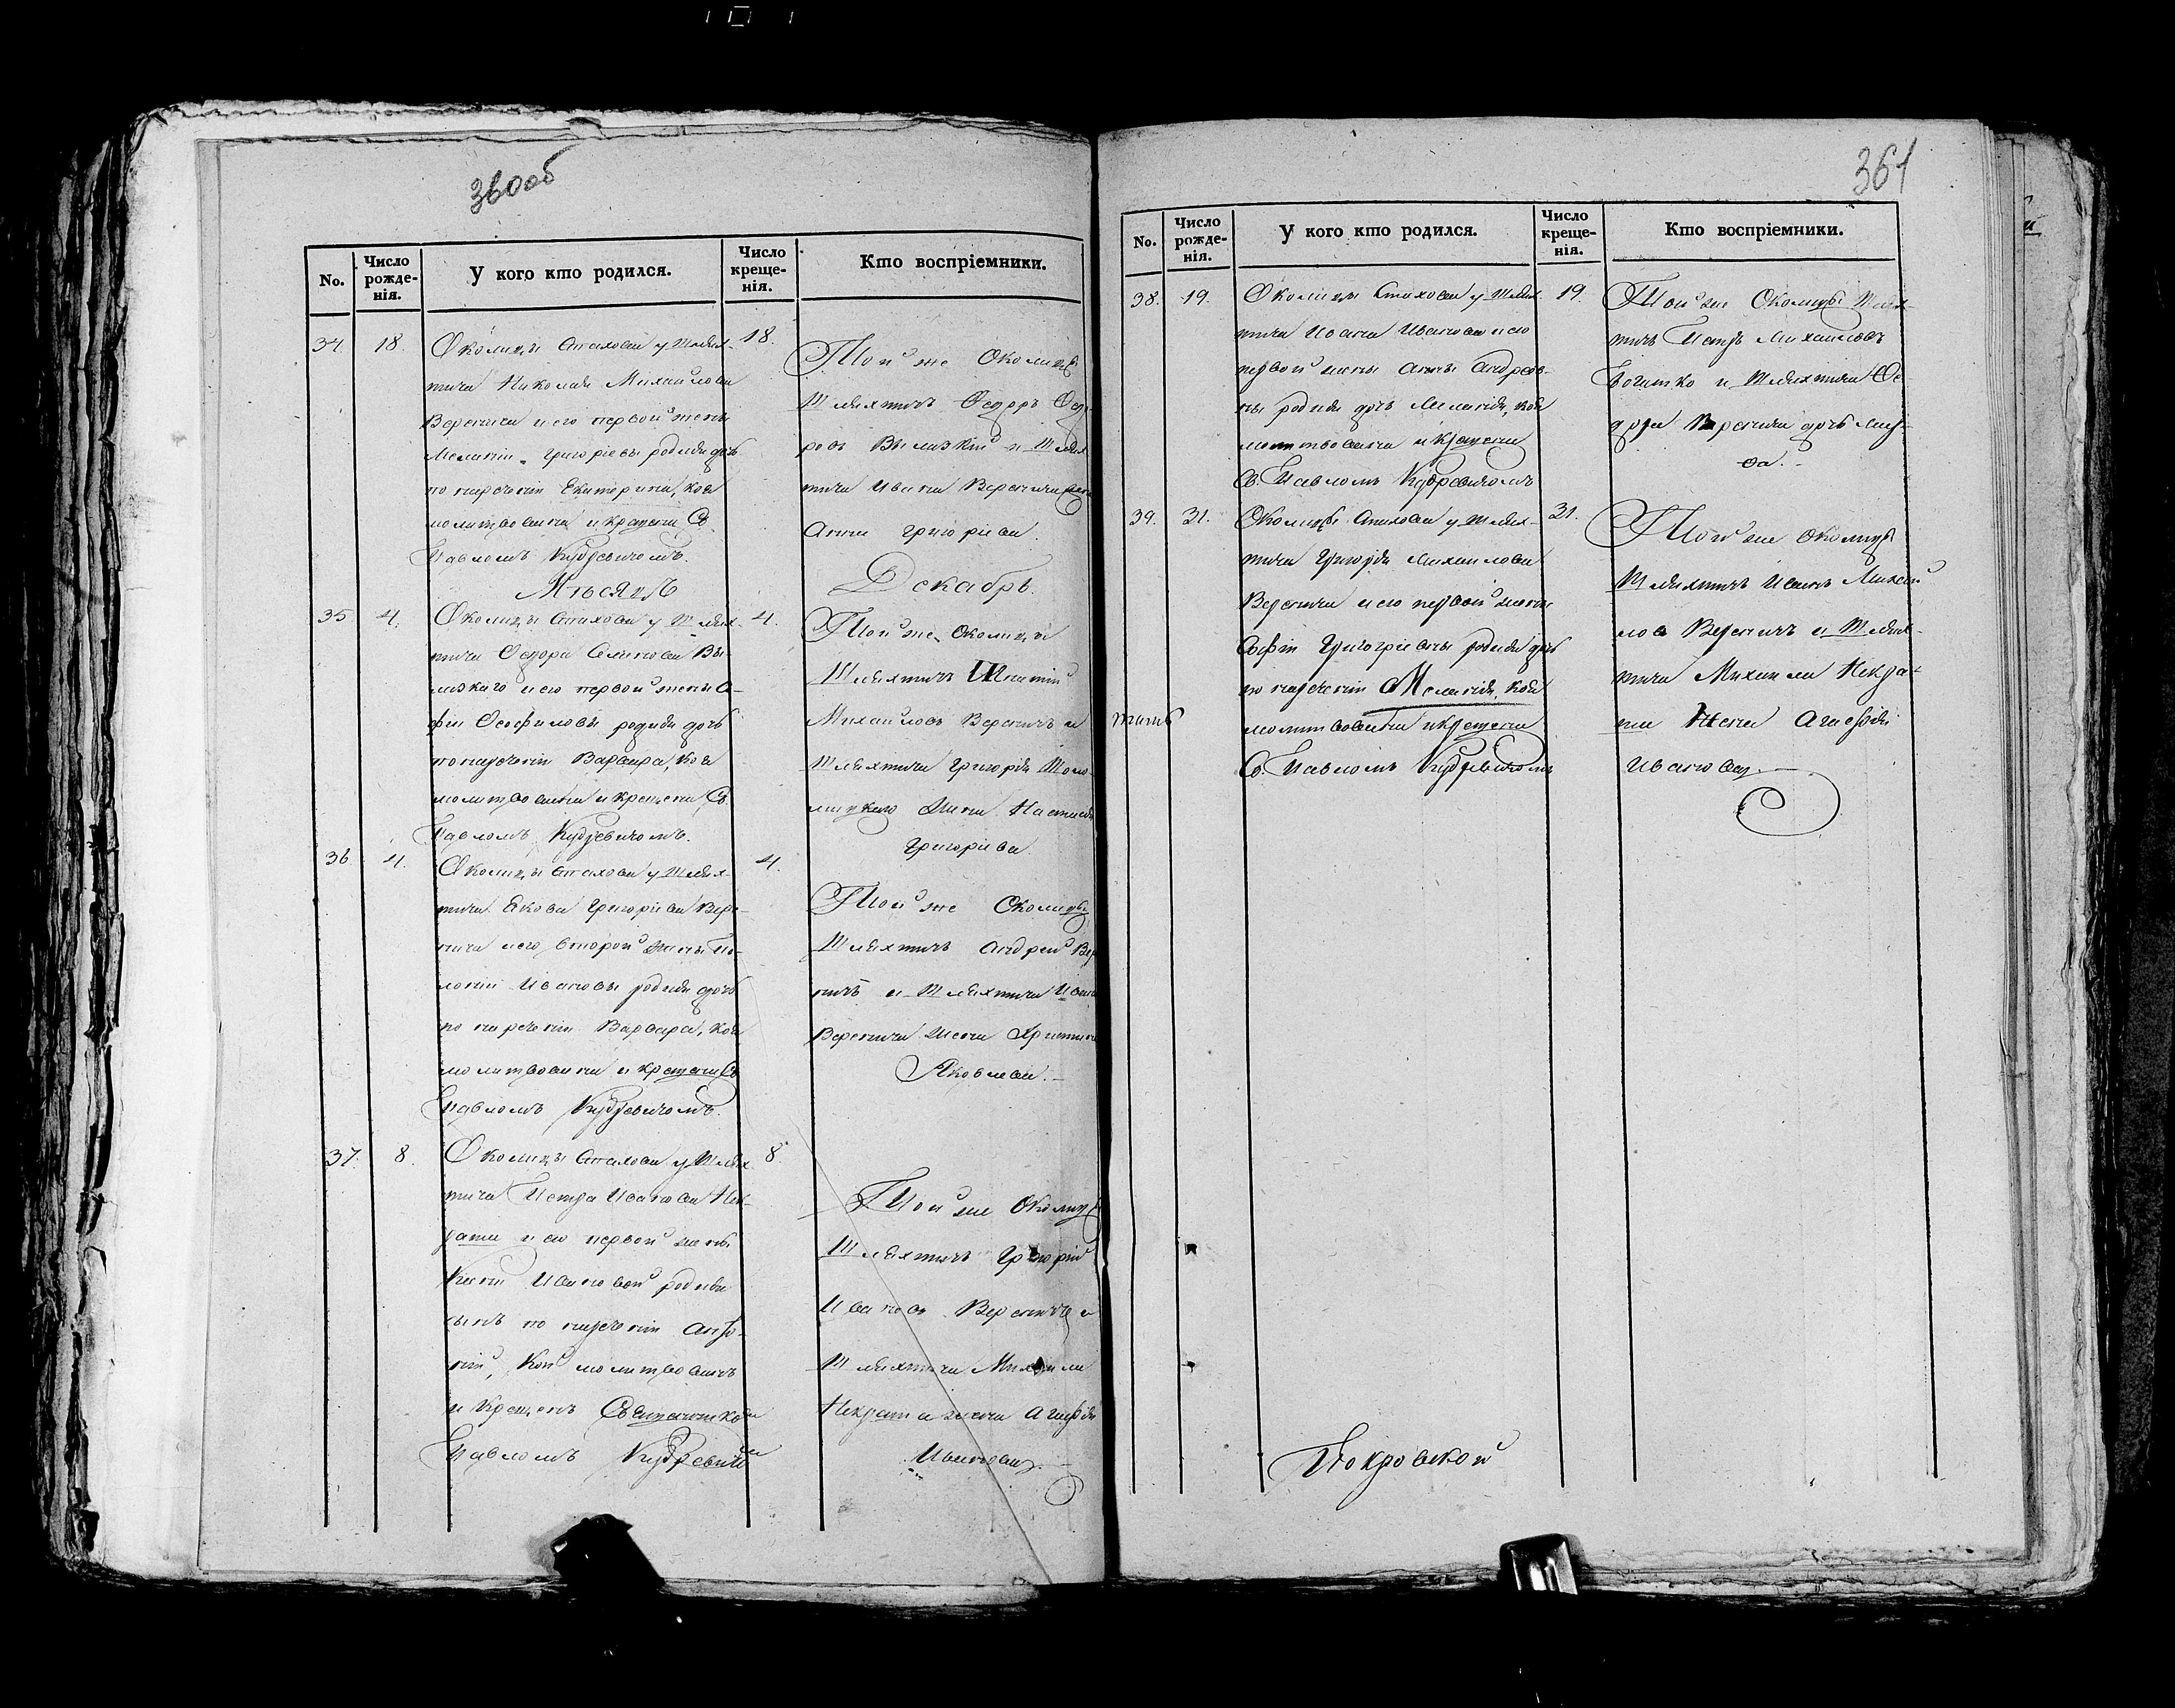 360об
No.
Число рожде-нія.
У кого кто родился.
Число креще-нія.
Кто воспріемники.
34
18.
Околицы Стахова у Шлях-
тича Николая Михайлова
Веренича и его первой жены
Меланіи Григоріевы родися дочь
по нареченіи Екатерина, коя
молитвована и крещена Св.
Павломъ Кудревичомъ.
18.
Той же Околицы
Шляхтичъ Ѳедоръ Ѳедо-
ровъ Вылазкій и Шлях-
тича Ивана Веренича
Анна Григоріева.
Мѣсяцъ
Декабрь.
35
4.
Околицы Стахова у Шлях-
тича Ѳедора Семенова Вы-
лазкаго и его первой жены Со-
фіи Ѳеофиловы родися дочь
по нареченіи Варвара, коя
молитвована и крещена Св.
Павломъ Кудревичомъ.
4.
Той же Околицы
Шляхтичъ
Михайловъ Вереничъ и
Шляхтича Григорія
Жена Настасія
Григоріева
36
4.
Околицы Стахова у Шлях-
тича Якова Григоріева Вере-
нича и его второй жены По-
лоніи Ивановы родися дочь
по нареченіи Варвара, коя
молитвована и крещена Св.
Павломъ Кудревичомъ.
4.
Той же Околицы
Шляхтичъ Андрей Вере-
ничъ и Шляхтича Ивана
Веренича Жена Христина
Яковлева.
37.
8.
Околицы Стахова у Шлях-
тича Петра Иванова Нек-
раша и его первой жены
Ивановой родися
сынъ по нареченіи Анто-
ній, Кой молитвованъ
и крещенъ Священникомъ
Павломъ Кудревичомъ
8.
Той же Околицы
Шляхтичъ Григорій
Ивановъ Вереничъ и
Шляхтича Михаила
Некраша жена Агафія
Иванова.
361
No.
Число рожде-нія.
У кого кто родился.
Число креще-нія.
Кто воспріемники.
38.
19.
Околицы Стахова у Шлях-
тича Ивана Иванова и его
первой жены Анны Андрее-
ны родися дочь Меланія, коя
молитвована и крещена
Св. Павломъ Кудревичомъ
19.
Той же Околицы Шлях-
тичъ Петръ Михайловъ
и Шляхтича Ѳе-
дора Веренича дочь Мар-
ѳа.
39.
31.
Околицы Стахова у Шлях-
тича Григорія Михайлова
Веренича и его первой жены
Софіи Григоріевны родися дочь
по нареченіи Меланія, коя
молитвована и крещена
Св. Павломъ Кудревичомъ
31.
Той же Околицы
Шляхтичъ Иванъ Михай-
ловъ Вереничъ и Шлях-
тича Михаила Некра-
ша Жена Агафія
Иванова.
Покровской